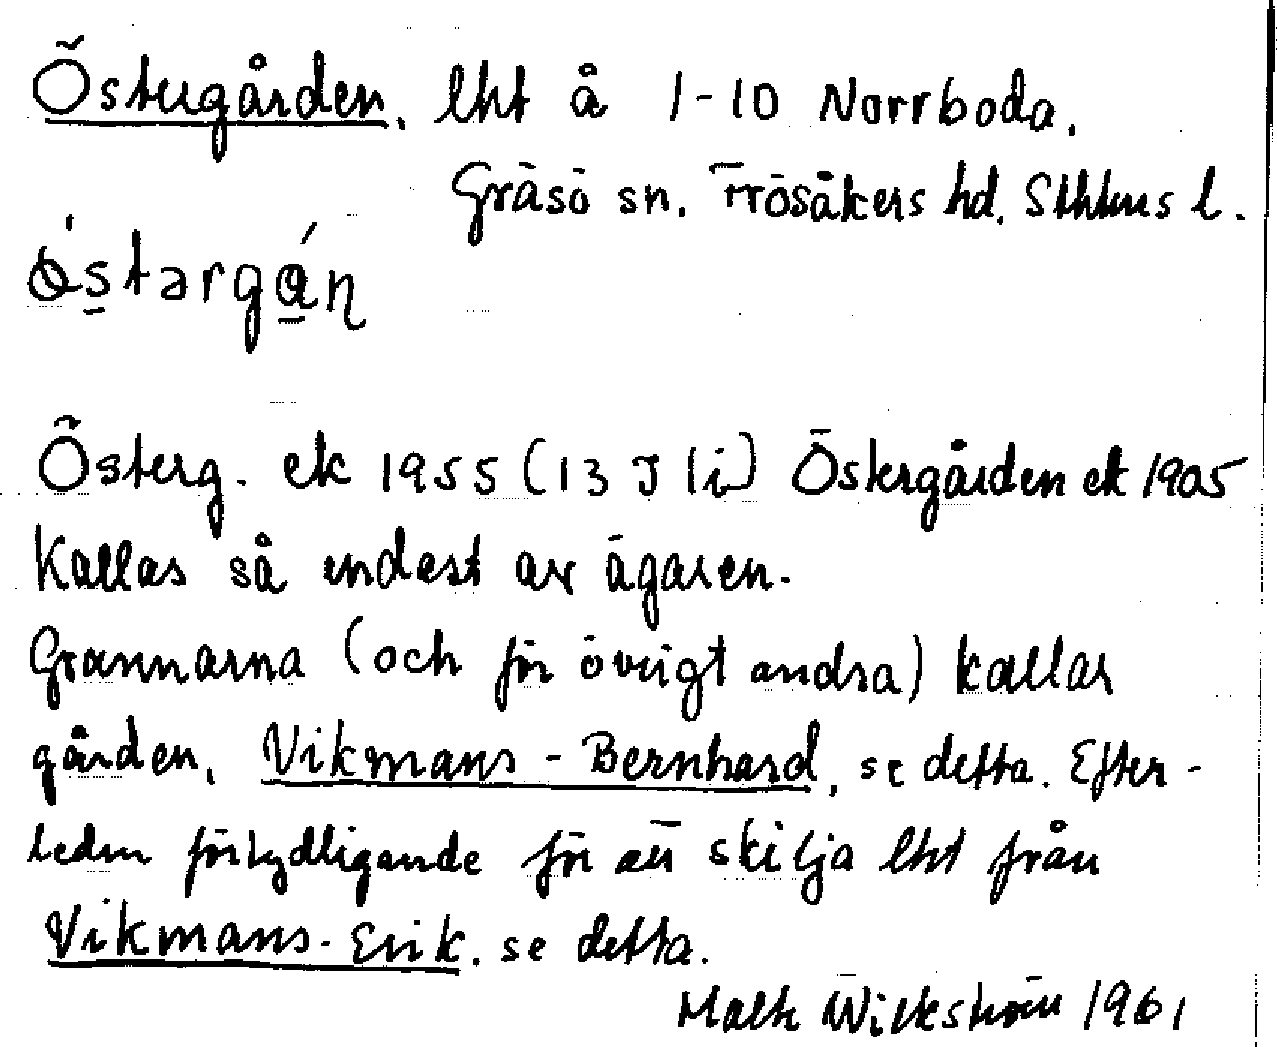 Östergården, lht å 1-10 Norrboda,
Gräsö sn. Frösåkers hd, Sthlms l.
ǿstargán
Österg. ek 1955 (13 J 1i) Östergården ek 1905
Kallas så endast av ägaren.
Grannarna (och för övrigt andra) kallar
gården, Vikmans-Bernhard, se detta. Efter-
leden förtydligande för att skilja lht från
Vikmans-Erik, se detta.
Wikström 1961